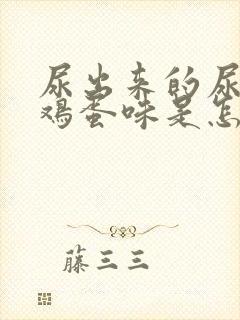 尿出来的尿
鸡蛋味是怎
藤三三